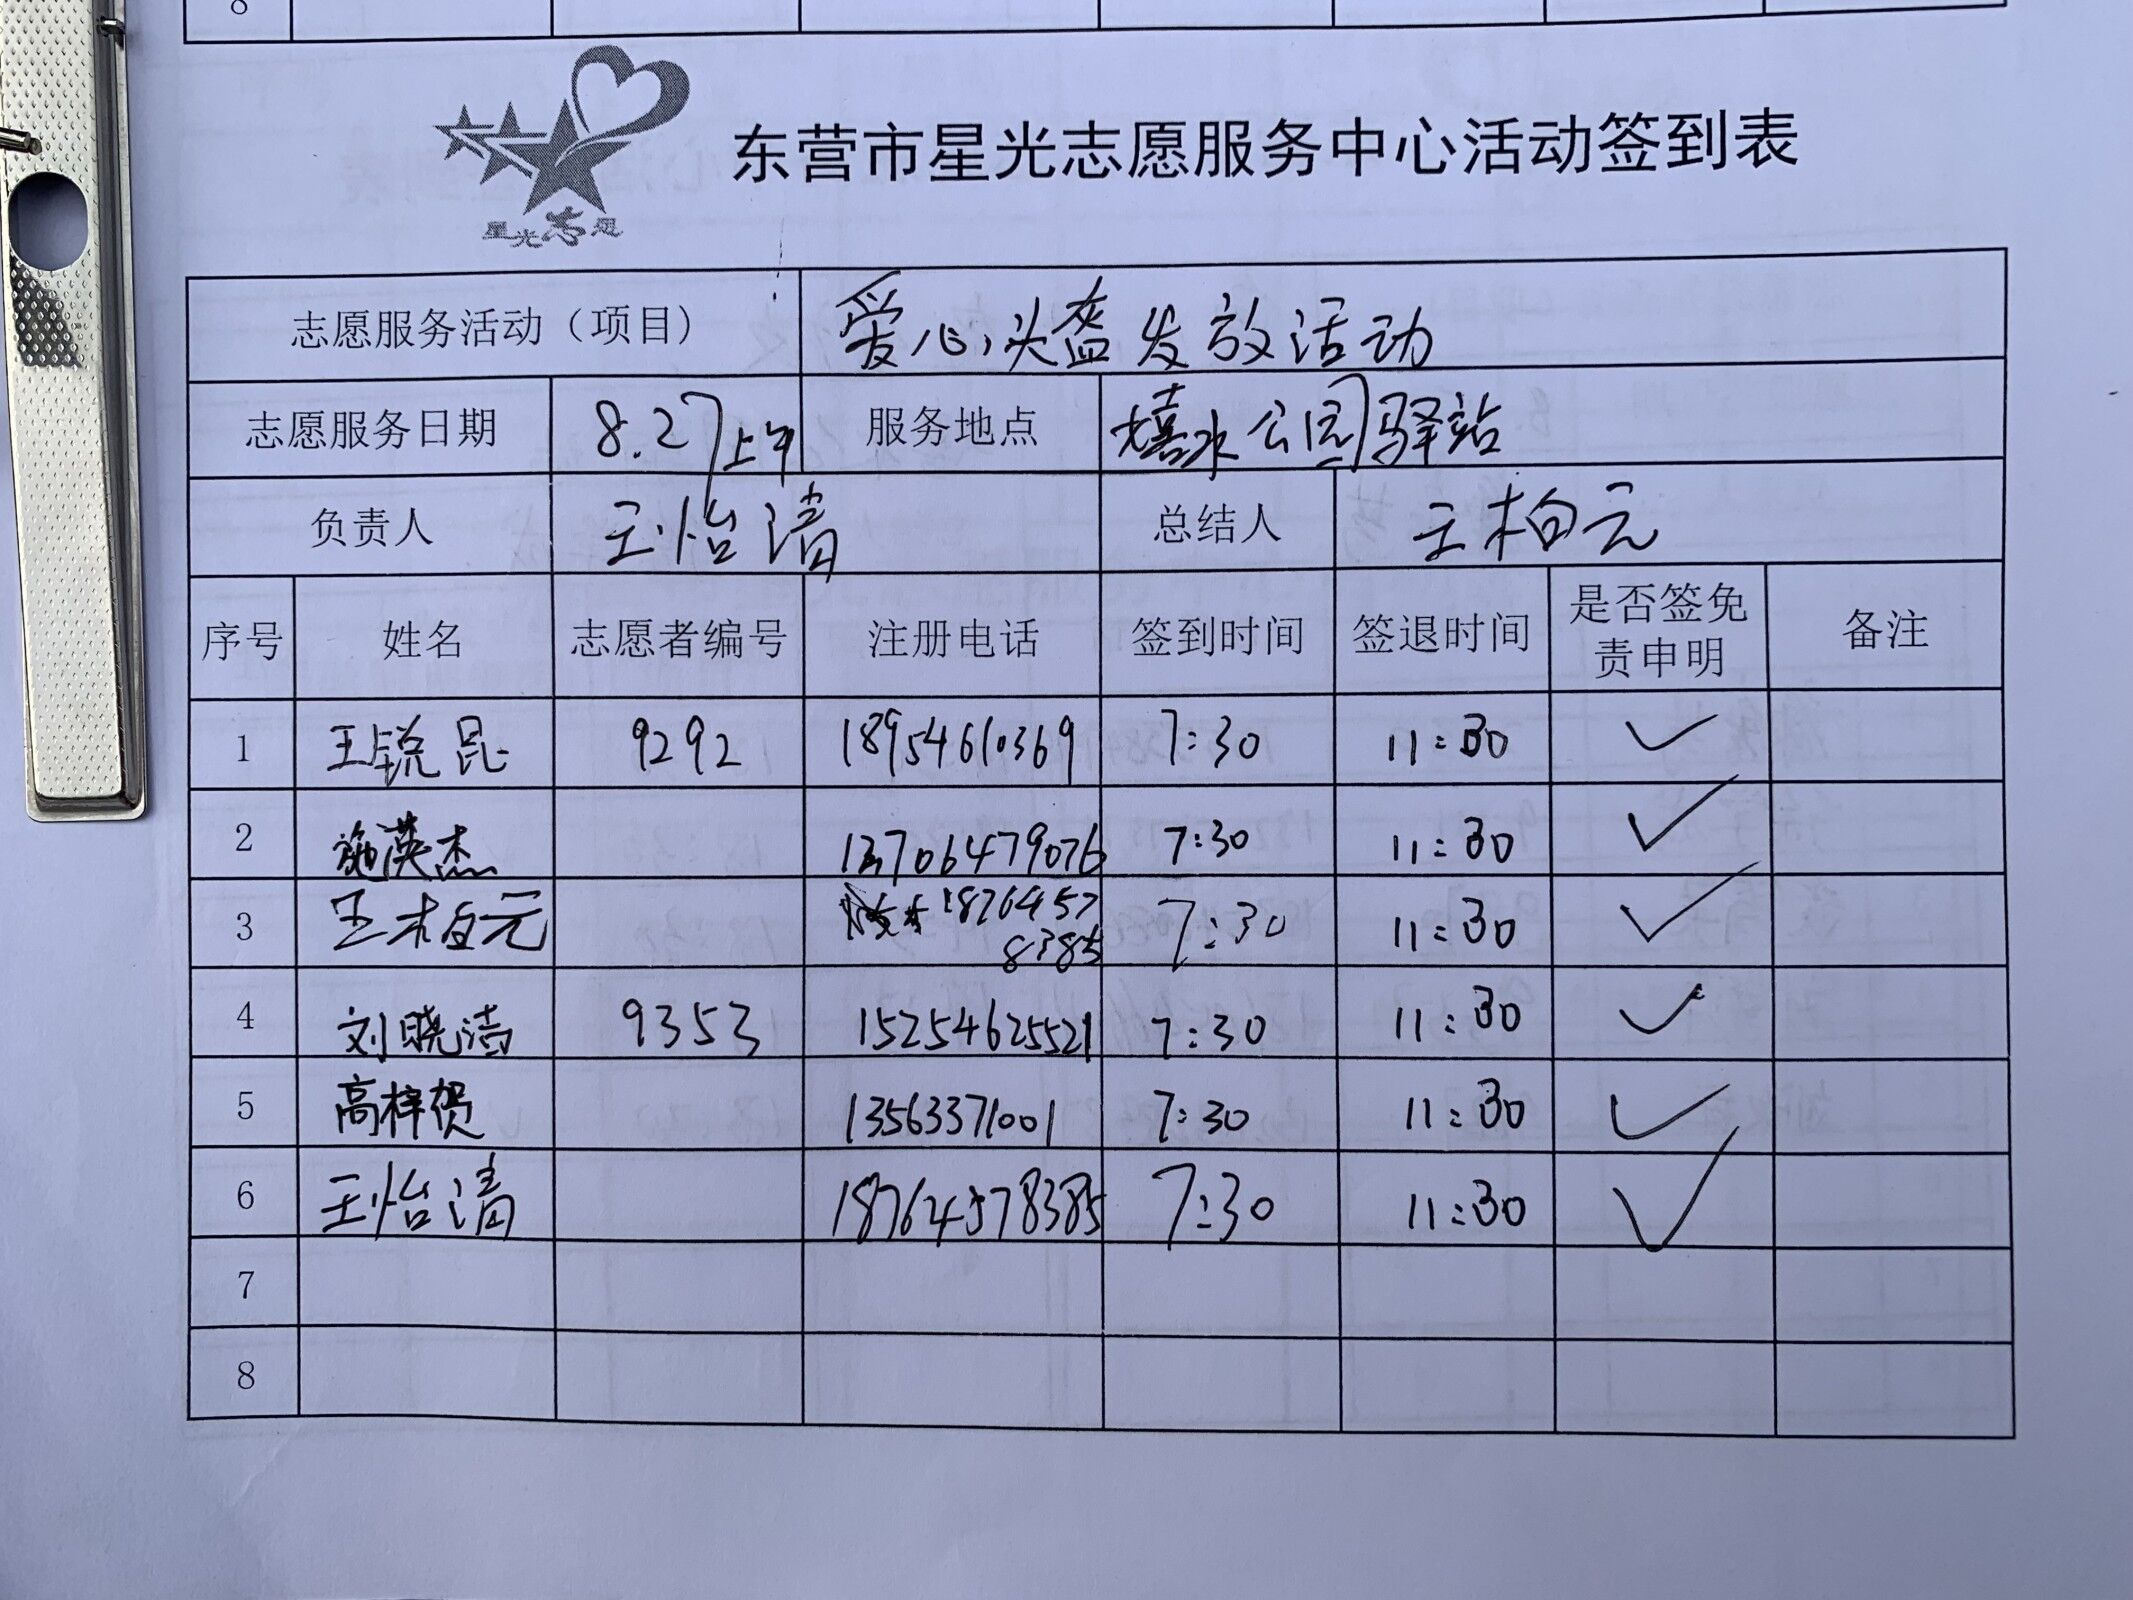 8
星光志愿
东营市星光志愿服务中心活动签到表
志愿服务活动（项目） 爱心头盔发放活动
志愿服务日期 8.27上午 服务地点 嬉水公园驿站
负责人 王怡清 总结人 王柏元
序号 姓名 志愿者编号 注册电话 签到时间 签退时间 是否签免责申明 备注
1 王锐昆 9292 18954610369 7:30 11:30 ✓
2 施英杰 13706479076 7:30 11:30 ✓
3 王柏元 18764578385 7:30 11:30 ✓
4 刘晓洁 9353 15254625521 7:30 11:30 ✓
5 高梓贺 13563371001 7:30 11:30 ✓
6 王怡清 18764578385 7:30 11:30 ✓
7
8